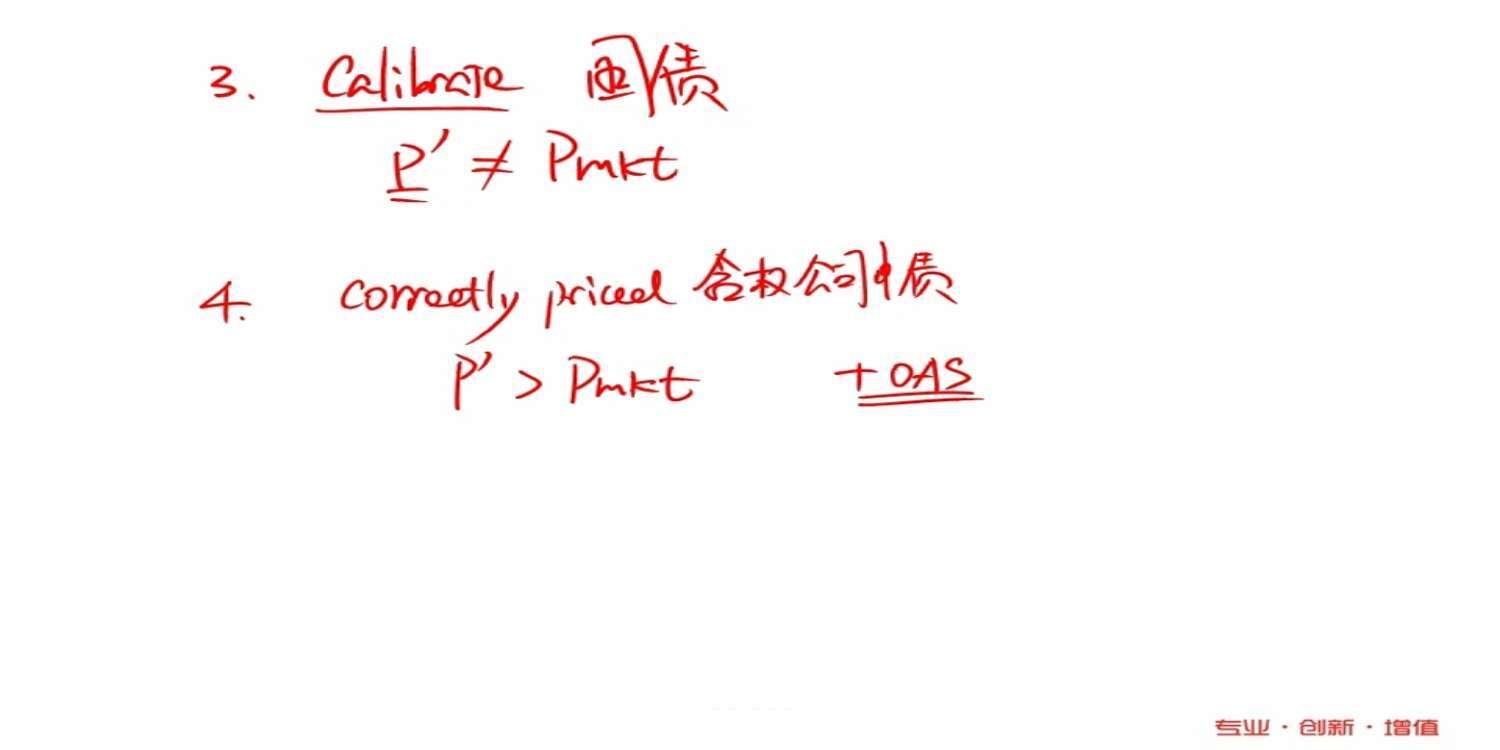 3. Calibrate 国债
P' ≠ Pmkt
4. correctly priced 含权公司债
P' > Pmkt +OAS
专业·创新·增值